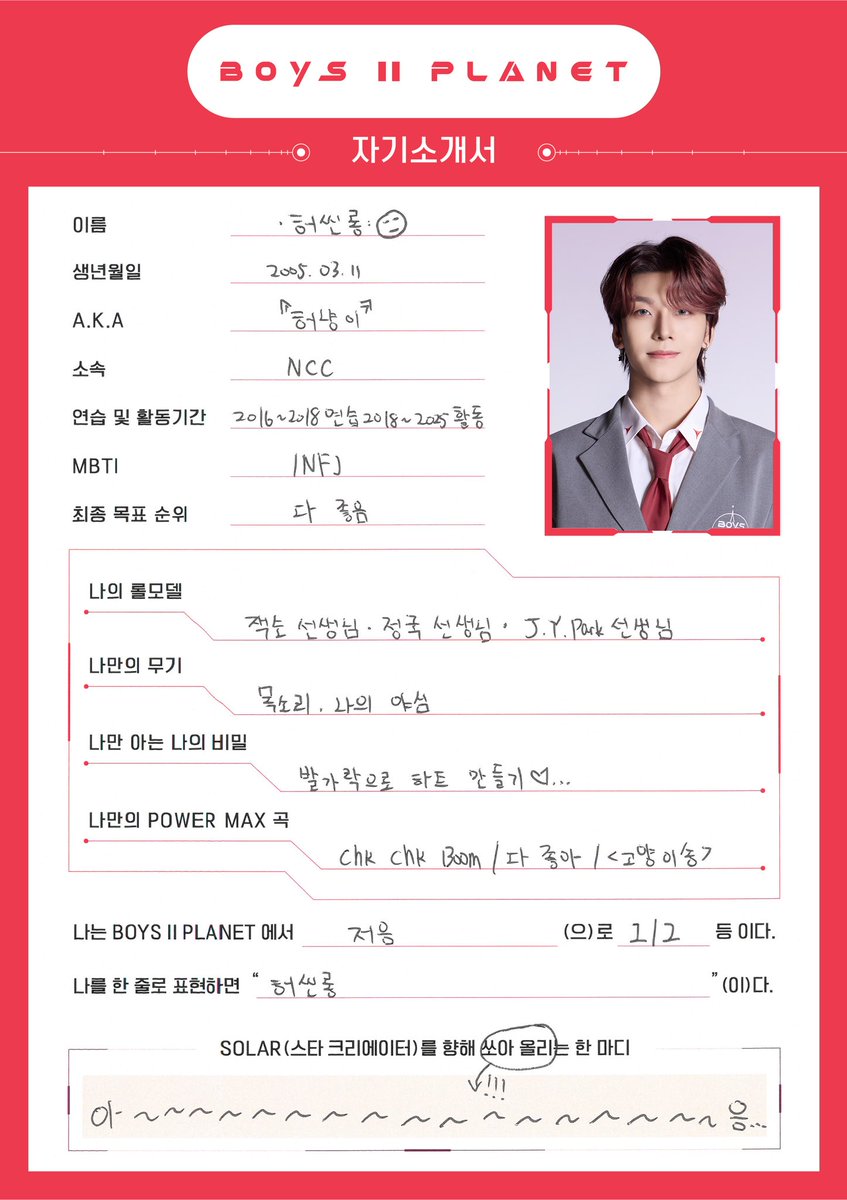 BOYS II PLANET
자기소개서
이름 · 허씬롱:
생년월일 2005. 03. 11
A.K.A "허냥이"
소속 NCC
연습 및 활동기간 2016~2018 연습 2018~2025 활동
MBTI INFJ
최종 목표 순위 다 좋음
BOYS
나의 롤모델
잭슨 선생님 · 정국 선생님 · J.Y. Park 선생님
나만의 무기
목소리. 나의 야심
나만 아는 나의 비밀
발가락으로 하트 만들기♡...
나만의 POWER MAX 곡
Chk Chk Boom / 다 좋아 / <고양이송>
나는 BOYS II PLANET 에서 저음 (으)로 1/2 등 이다.
나를 한 줄로 표현하면 “ 허씬롱 ” (이)다.
SOLAR (스타 크리에이터)를 향해 쏘아 올리는 한 마디
!!!
아~~~~~~~~~~~~~~~~~~~음...